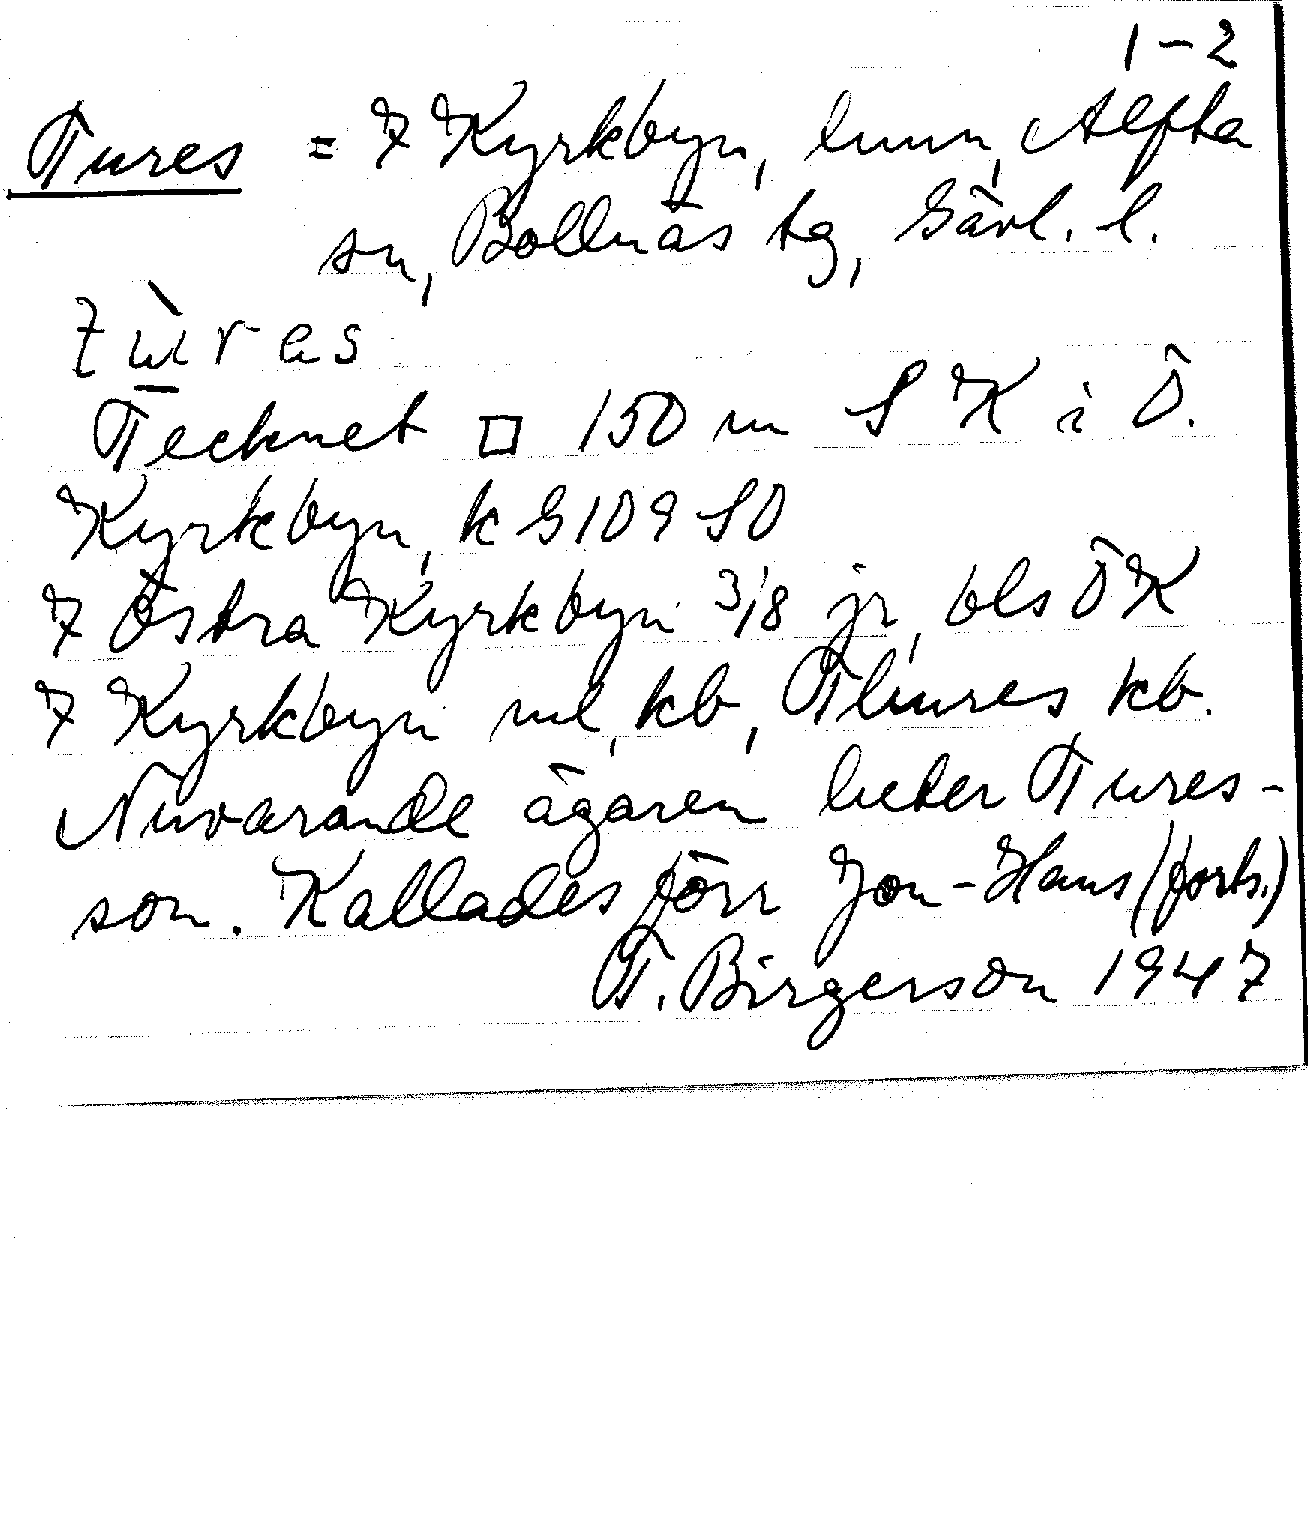 1-2
Tures = 7 Kyrkbyn, hmn, Alfta
sn, Bollnäs tg, Gävl. l.
tùras
Tecknet □ 150 m S K i Ö.
Kyrkbyn, k G109 SO
7 Östra Kyrkbyn 3/8 jr, bls ÖK
7 Kyrkbyn ml, kb, Thures kb.
Nuvarande ägaren heter Tures-
son. Kallades förr Jon-Hans (forts.)
T. Birgerson 1947